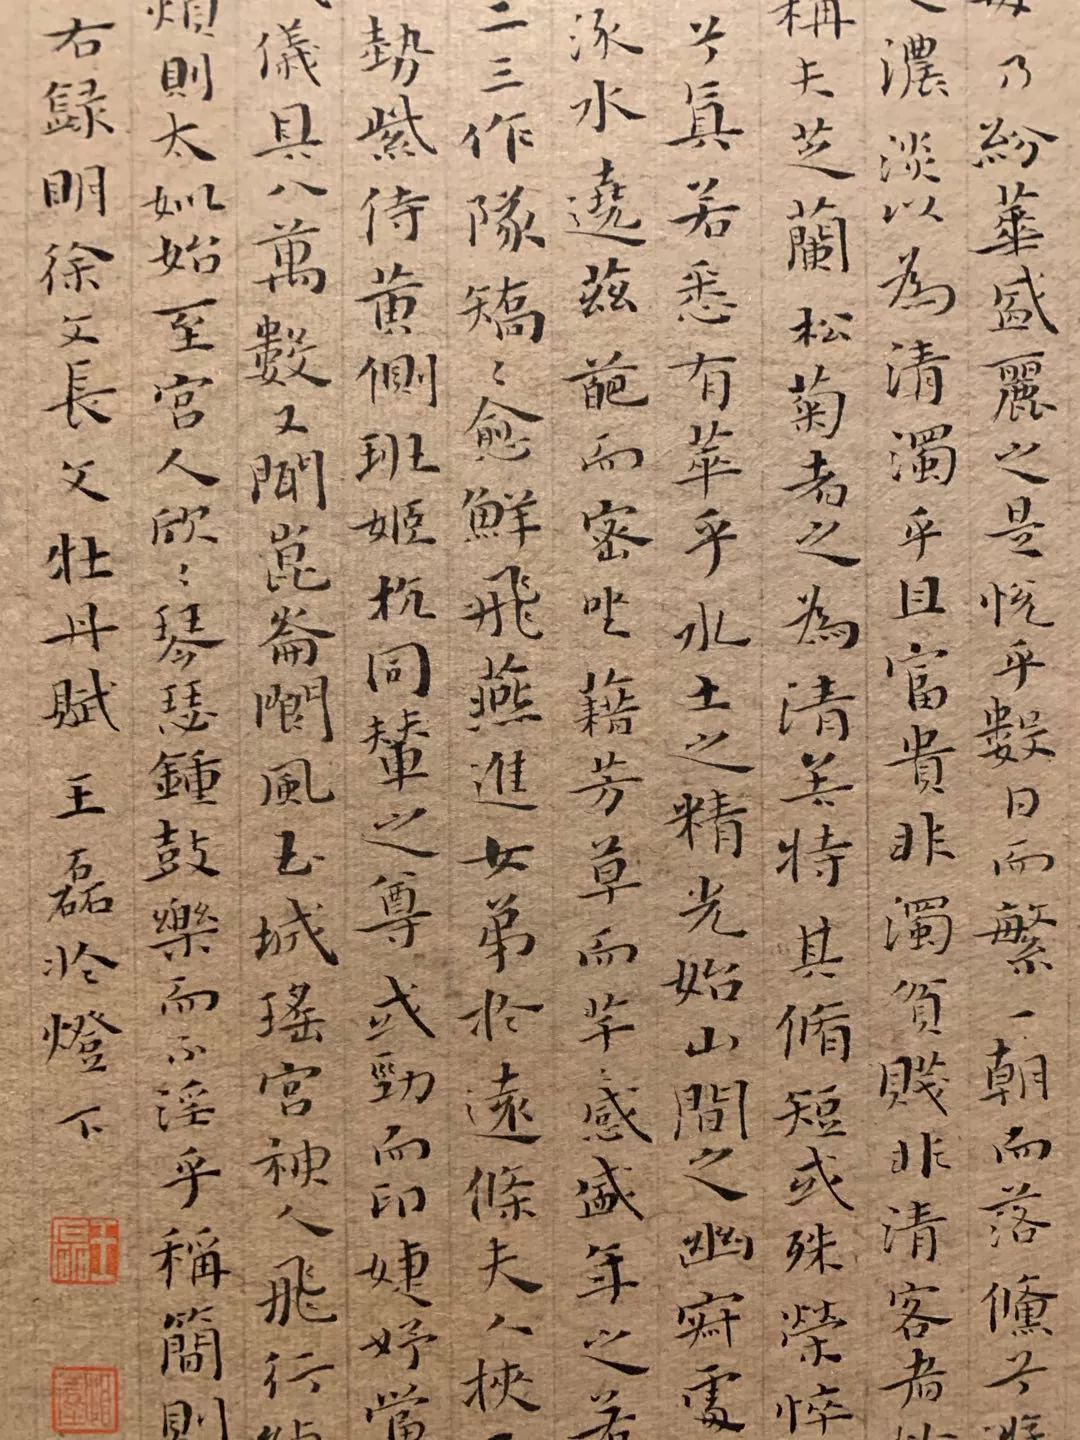 乃紛華盛麗之是悅乎數日而繁一朝而落儵兮
濃淡以為清濁乎且富貴非濁貧賤非清客者
稱夫芝蘭松菊者之為清善特其脩短或殊榮悴
兮真若悉有華乎水土之精光始山間之幽
涿水遶茲葩而密坐藉芳草而芊〻感盛年之若
二三作隊矯〻愈鮮飛燕進女弟於遠條夫人挾
勢紫侍黃側班姬抗同輦之尊或勁而印婕妤當
儀具八萬數又聞崑崙閬風玉城瑤宮神人飛行
煩則太姒始至宮人欣〻琴瑟鍾鼓樂而不淫乎稱簡則
右錄明徐文長父牡丹賦 王磊於燈下